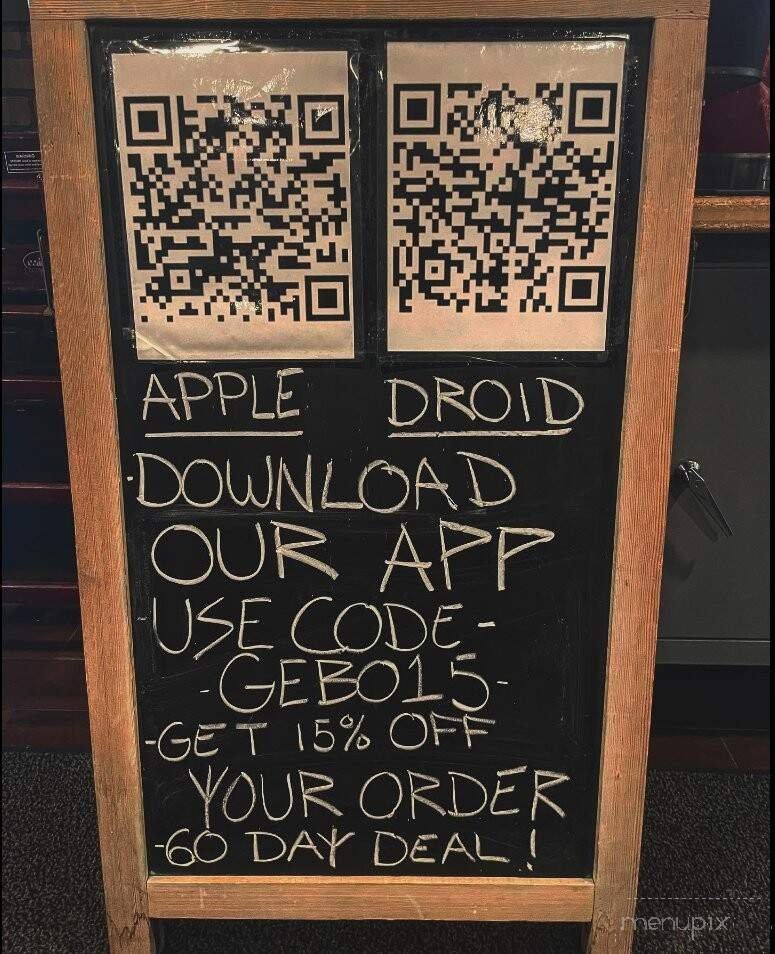 APPLE DROID
·DOWNLOAD
OUR APP
USE CODE-
-GEBO15-
-GET 15% OFF
YOUR ORDER
-60 DAY DEAL!
menupix